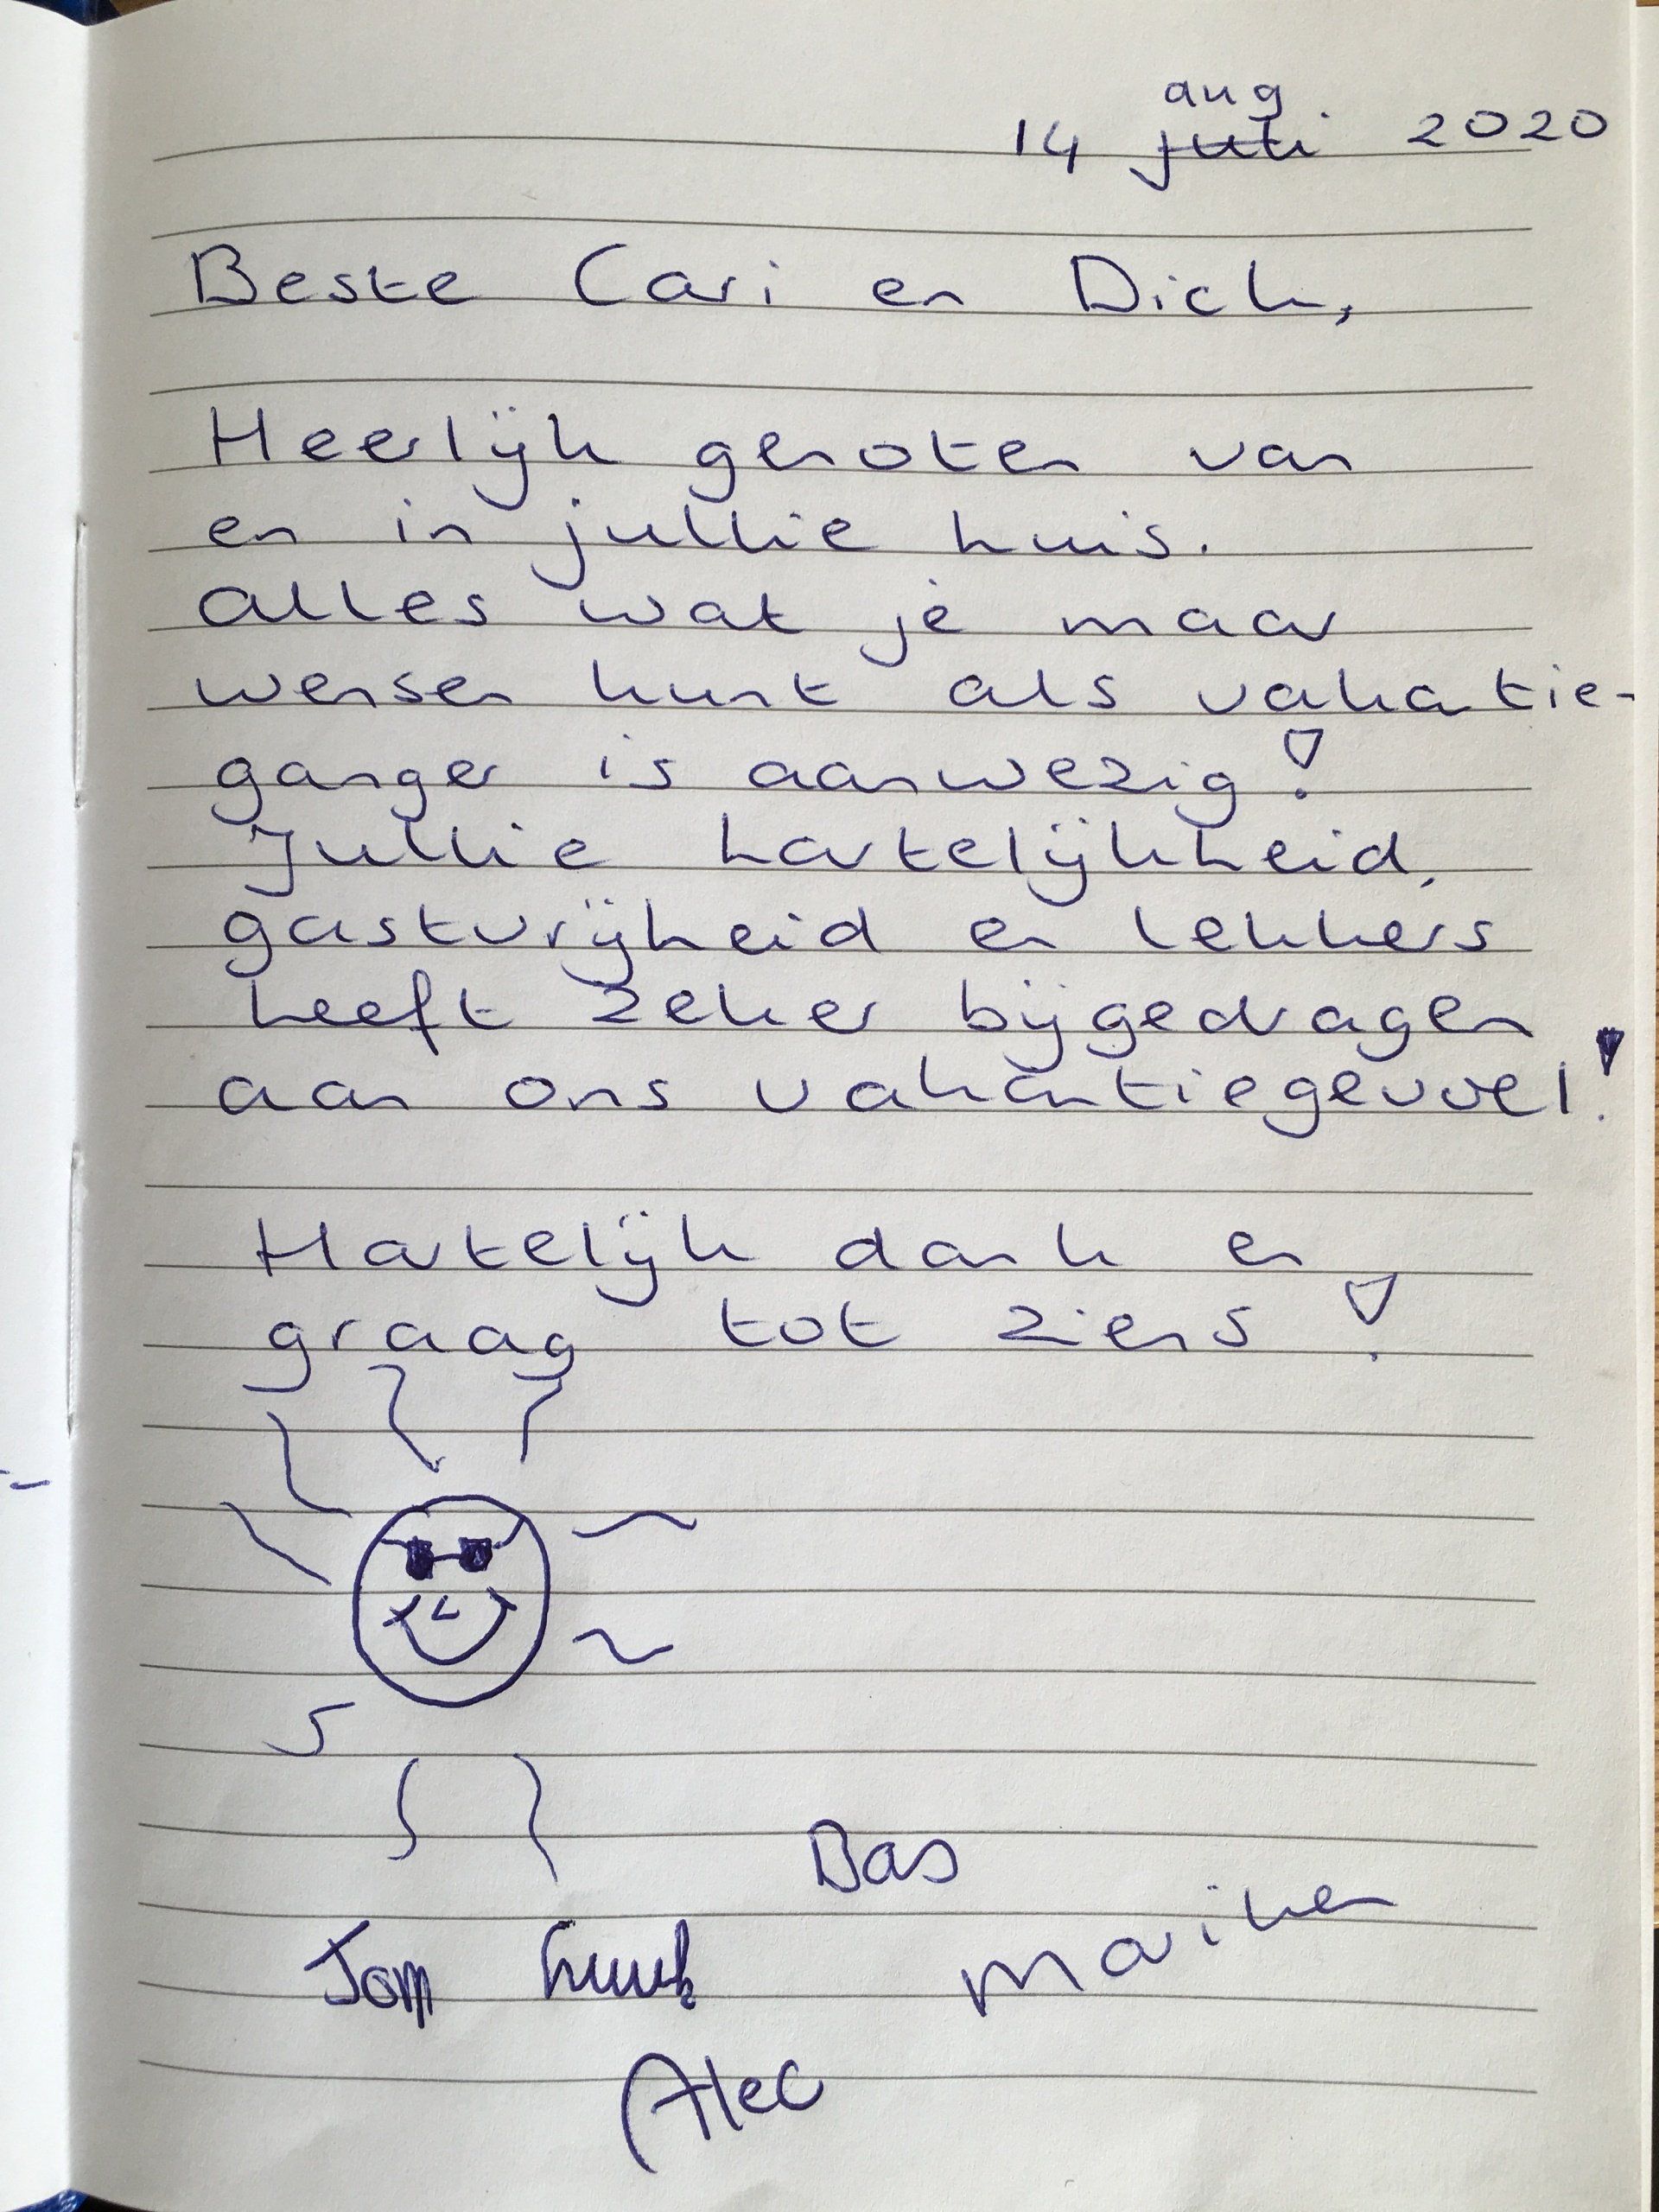 aug.
14 juli 2020
Beste Cari en Dick,
Heerlijk genoten van
en in jullie huis.
Alles wat je maar
wensen kunt als vakantie-
ganger is aanwezig!
Jullie hartelijkheid,
gastvrijheid en lekkers
heeft zeker bijgedragen
aan ons vakantiegevoel!
Hartelijk dank en
graag tot ziens!
Bas
Tom Luuk Mariken
Alec